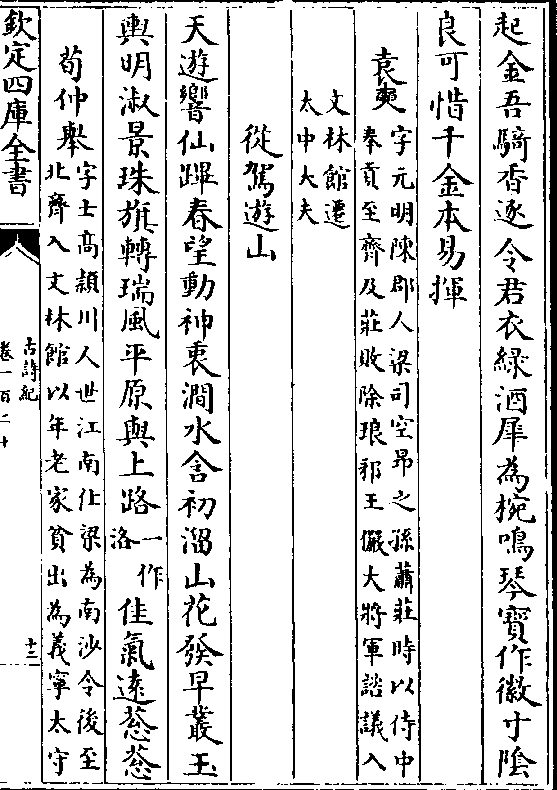 起金吾騎香逐令君衣綠酒犀為椀鳴琴寳作徽寸隂
良可惜千金本易揮
袁奭
字元明陳郡人梁司空昂之孫蕭莊時以侍中
奉貢至齊及莊敗除琅邪王儼大將軍諮議入
文林館遷
太中大夫
從駕遊山
天遊響仙蹕春望動神衷澗水含初溜山花發早叢玉
輿明淑景珠旗轉瑞風平原與上路
一作
洛
佳氣遠葱葱
荀仲舉
字士髙頴川人世江南仕梁為南沙令後至
北齊入文林館以年老家貧出為義寧太守
欽定四庫全書
古詩紀
卷一百二十
十三